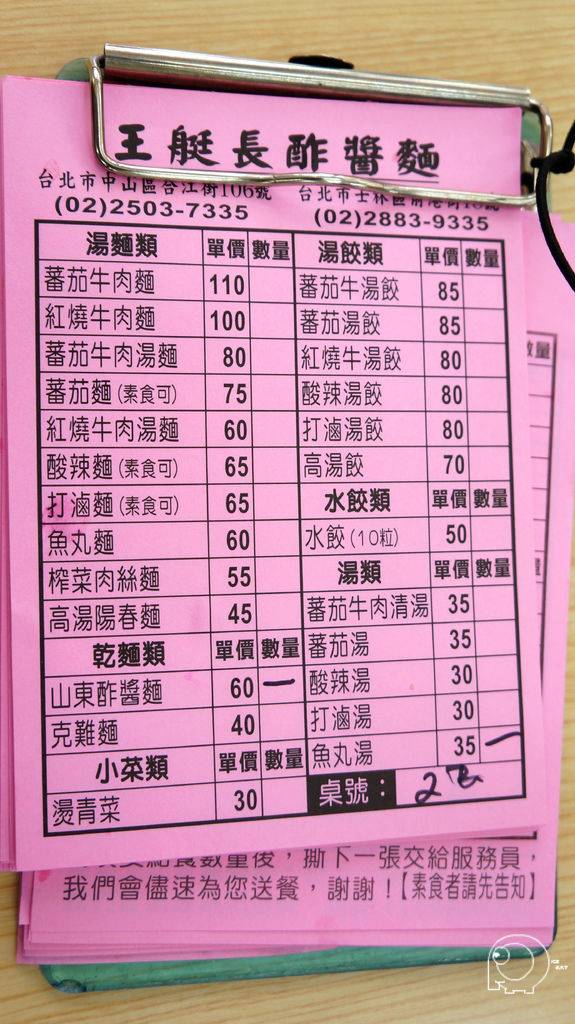 王艇長酢醬麵
台北市中山區合江街106號
(02)2503-7335
台北市士林區前港街
(02)2883-9335
湯麵類 單價 數量
蕃茄牛肉麵 110
紅燒牛肉麵 100
蕃茄牛肉湯麵 80
蕃茄麵(素食可) 75
紅燒牛肉湯麵 60
酸辣麵(素食可) 65
打滷麵(素食可) 65
魚丸麵 60
榨菜肉絲麵 55
高湯陽春麵 45
乾麵類 單價 數量
山東酢醬麵 60 一
克難麵 40
小菜類 單價 數量
燙青菜 30
湯餃類 單價 數量
蕃茄牛湯餃 85
蕃茄湯餃 85
紅燒牛湯餃 80
酸辣湯餃 80
打滷湯餃 80
高湯餃 70
水餃類 單價 數量
水餃(10粒) 50
湯類 單價 數量
蕃茄牛肉清湯 35
蕃茄湯 35
酸辣湯 30
打滷湯 30
魚丸湯 35 一
桌號：
數量
食數量後，撕下一張交給服務員，
我們會儘速為您送餐，謝謝！【素食者請先告知】